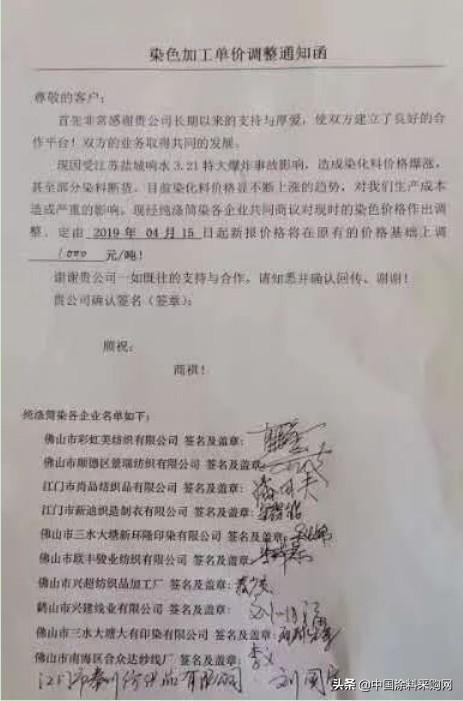 染色加工单价调整通知函
尊敬的客户：
首先非常感谢贵公司长期以来的支持与厚爱，使双方建立了良好的合
作平台！双方的业务取得共同的发展。
现因受江苏盐城响水 3.21 特大爆炸事故影响，造成染化料价格爆涨，
甚至部分染料断货。目前染化料价格显不断上涨的趋势，对我们生产成本
造成严重的影响。现经纯涤筒染各企业共同商议对现时的染色价格作出调
整。定由 2019 年 04 月 15 日起新报价格将在原有的价格基础上调
1000 元/吨！
谢谢贵公司一如既往的支持与合作，请知悉并确认回传、谢谢！
贵公司确认签名（签章）：
顺祝：
商祺！
纯涤筒染各企业名单如下：
佛山市彩虹美纺织有限公司 签名及盖章：
佛山市顺德区景瑞纺织有限公司 签名及盖章：
江门市尚品纺织品有限公司 签名及盖章：
江门市新迪织造制衣有限公司 签名及盖章：
佛山市三水大塘新环隆印染有限公司 签名及盖章：
佛山市联丰骏业纺织有限公司 签名及盖章：
佛山市兴超纺织品加工厂 签名及盖章：
鹤山市兴建线业有限公司 签名及盖章：
佛山市三水大塘大有印染有限公司 签名及盖章：
佛山市南海区合众达纱线厂 签名及盖章： 李义
江门市 纺织品有限公司 刘国
头条 @中国涂料采购网